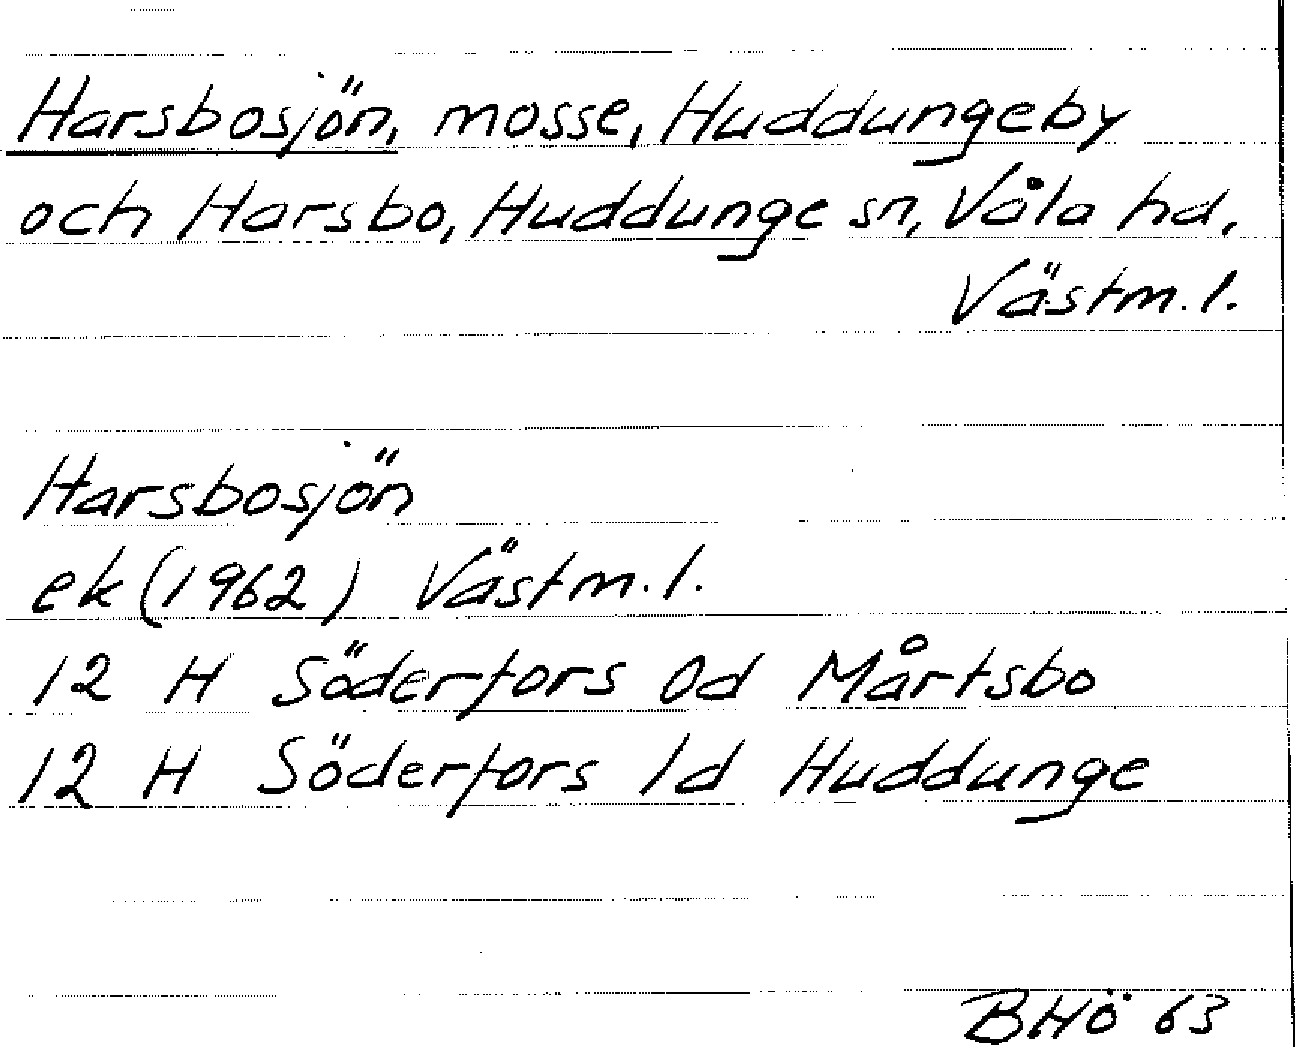 Harsbosjön, mosse, Huddungeby
och Harsbo, Huddunge sn, Våla hd,
Västm. l.
Harsbosjön
ek (1962) Västm. l.
12 H Söderfors 0d Mårtsbo
12 H Söderfors 1d Huddunge
BHö 63